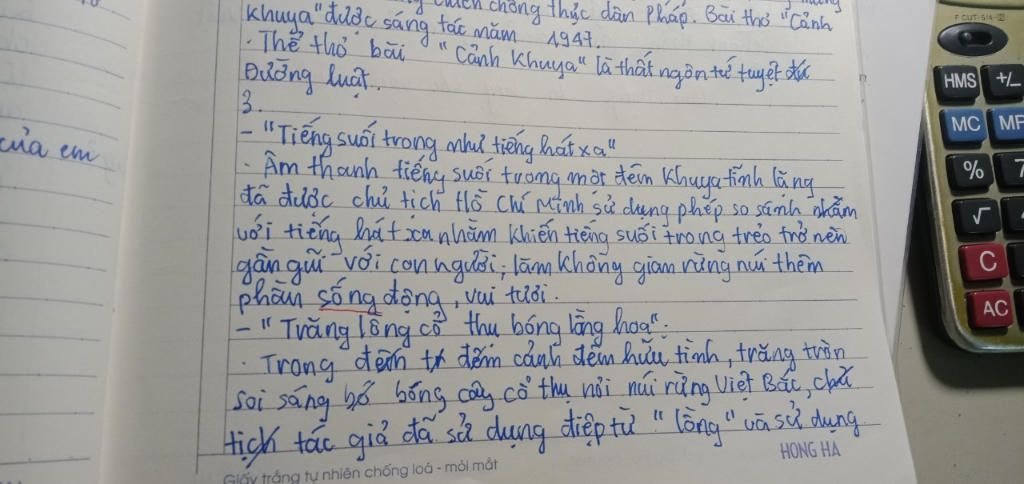 chiến chống thực dân Pháp. Bài thơ "Cảnh
khuya" được sáng tác năm 1947.
· Thể thơ bài "Cảnh Khuya" là thất ngôn tứ tuyệt
Đường luật.
3.
- "Tiếng suối trong như tiếng hát xa"
· Âm thanh tiếng suối trong một đêm khuya tĩnh lặng
đã được chủ tịch Hồ Chí Minh sử dụng phép so sánh nhằm
với tiếng hát xa nhằm khiến tiếng suối trong trẻo trở nên
gần gũi với con người, làm không gian rừng núi thêm
phần sống động, vui tươi.
- "Trăng lồng cổ thụ bóng lồng hoa".
· Trong đêm tr đêm cảnh đêm hữu tình, trăng tròn
soi sáng bó bóng cây cổ thụ nơi núi rừng Việt Bắc, chủ
tịch tác giả đã sử dụng điệp từ "lồng" và sử dụng
HONG HA
Giấy trắng tự nhiên chống loá - mỏi mắt
của em
F CUT-5/4
HMS +/-
MC MF
% 7
√ 4
C
AC